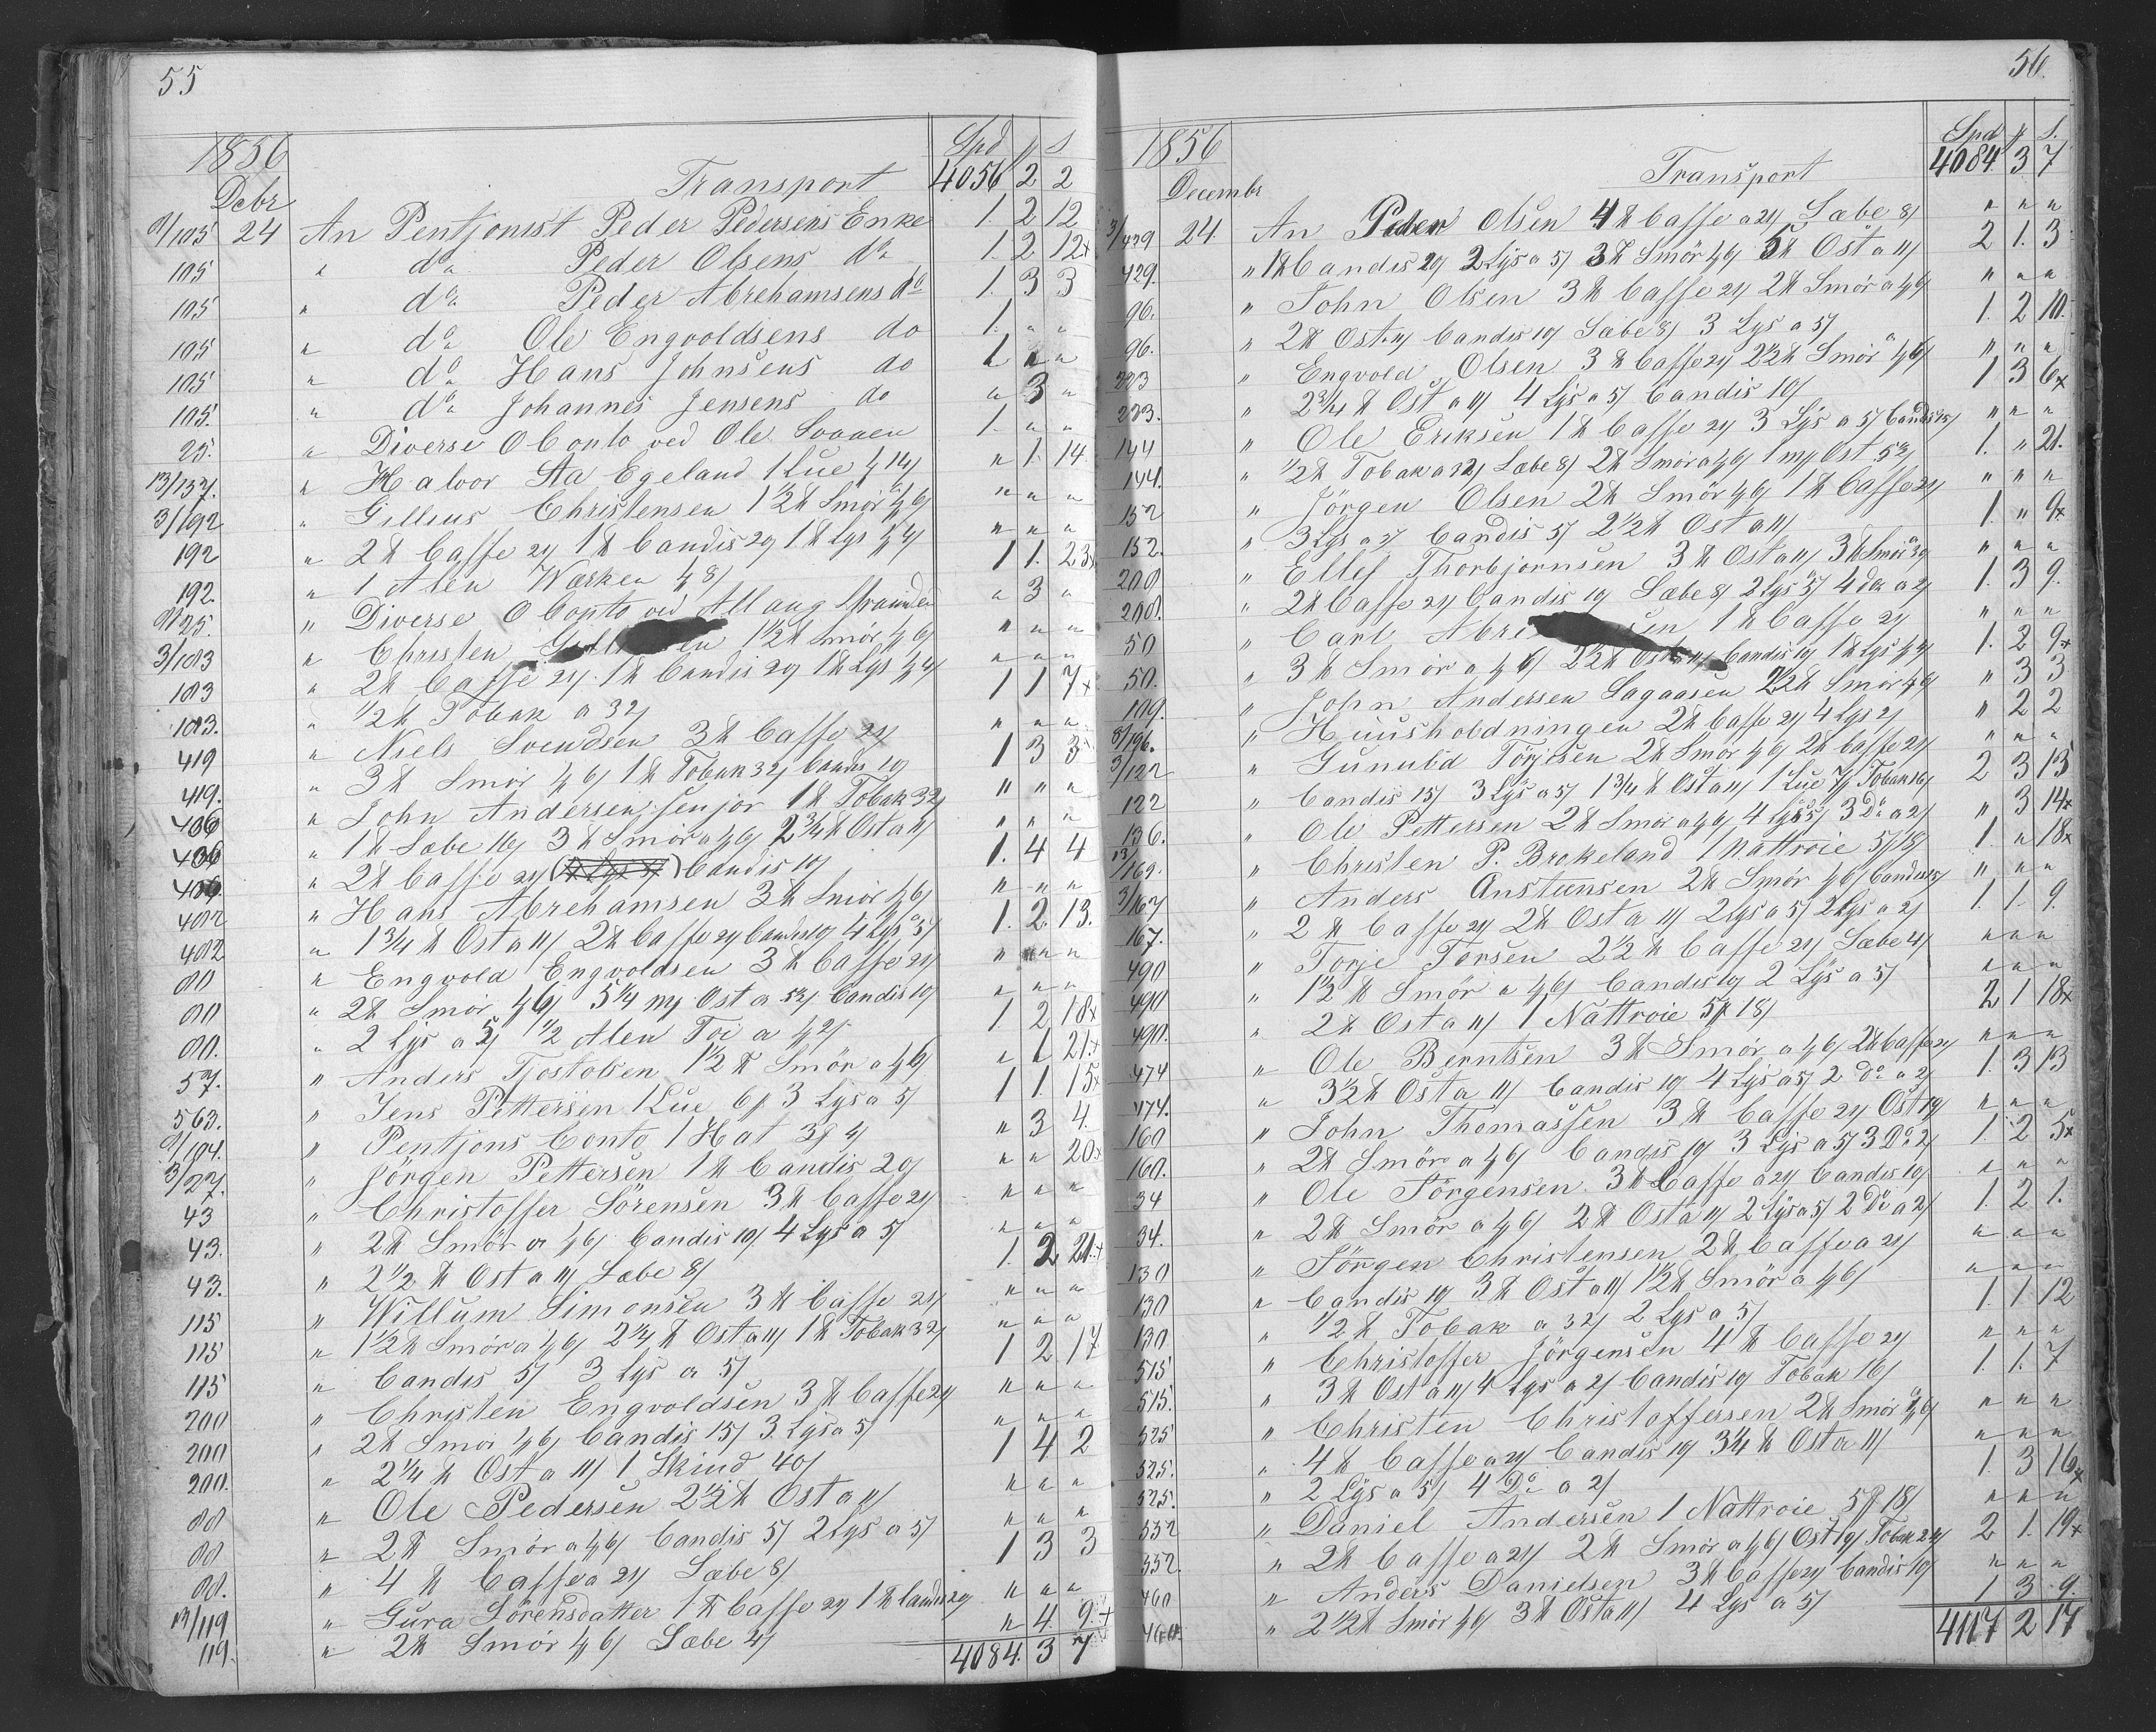 55
1856 Spd ꝑ s
Debr Transport 4056 2 2
9/105 24 An Pentjonist Peder Pedersens Enke 1. 2 12
105 " do Peder Olsens do 1. 2 12x
105 " do Peder Abrehamsens do 1. 3 3
105 " do Ole Engvoldsens do 1. " "
105 " do Hans Johnsens do 1 " "
105. " do Johannes Jensens do " 3 "
25. " Diverse O Conto ved Ole 1. " "
13/137. " Halvor Aa Egeland 1 Lue " 1. 14
3/192 " Gellius Christensen 1 1/2 ℔ Smör " " "
192 " 2 ℔ Caffe 24 1 ℔ Candis 29 1 ℔ Lys " " "
192. " 1 Alen Værken 1 1. 23x
9/25. " Diverse O Conto ved " 3 "
3/103 " Christen 1 1/2 ℔ Smör " " "
103 " 2 ℔ Caffe 24 1 ℔ Candis 29 1 ℔ Lys " " "
103. " 1/2 ℔ Tobak a 32/ 1 1 7x
419 " Niels Svendsen 3 ℔ Caffe 24 " " "
419. " 3 ℔ Smör 1 ℔ Tobak 32/ Candis 19 1 3 3
406 " John Andersen Senjor 1 ℔ Tobak 32/ " " "
406 " 1 ℔ Sæbe 16/ 3 ℔ Smör a 2 3/4 ℔ Ost a 11/ " " "
406 " 2 ℔ Caffe 24 Candis 10/ 1. 4 4
402 " Hans Abrehamsen 3 ℔ Smör " " "
402 " 1 3/4 ℔ Ost a 11/ 2 ℔ Caffe 24 Candis 4 Lys a 5/ 1. 2 13.
00 " Engvold Engvoldsen 3 ℔ Caffe 24 " " "
00 " 2 ℔ Smör 5 1/4 Ost a Candis 10/ " " "
00. " 2 Lys a 5/ 1/2 Alen Toi a 1. 2 18x
57. " Anders Tjostolsen 1 1/2 ℔ Smör a " 1 21x
563. " Jens Pettersen 1 Lue 6 ꝑ 3 Lys a 5/ 1 1. 15x
9/104. " Pentjons Conto 1 Hat " 3 4.
3/27. " Jörgen Pettersen 1 ℔ Candis 29 " " 20x
43 " Christoffer Sörensen 3 ℔ Caffe 24 " " "
43. " 2 ℔ Smör a Candis 19/ 4 Lys a 5/ " " "
43. " 2 1/2 ℔ Ost a 11/ Sæbe 8/ 1. 2 21x
115 " Willum Simonsen 3 ℔ Caffe 24 " " "
115 " 1 1/2 ℔ Smör a 2 1/4 ℔ Ost a 11/ 1 ℔ Tobak 32/ " " "
115 " Candis 5/ 3 Lys a 5/ 1 2 17
200 " Christen Engvoldsen 3 ℔ Caffe 24 " " "
200 " 2 ℔ Smör Candis 15/ 3 Lys a 5/ " " "
200. " 2 1/4 ℔ Ost a 11/ 1 Skind 40/ 1 4 2
00 " Ole Pedersen 2 1/2 ℔ Ost a 11/ " " "
00 " 2 ℔ Smör a Candis 5/ 2 Lys a 5/ " " "
00. " 4 ℔ Caffe a 24 Sæbe 8/ 1 3 3
13/119 " Gura Sörensdatter 1 ℔ Caffe 29 1 ℔ Candis 29 " " "
119. " 2 ℔ Smör Sæbe 4/ " 4 9x
4084. 3 7
56.
1856 Spd ꝑ s.
Decembr Transport 4084. 3 7
3/439 24. An Peder Olsen 4 ℔ Caffe a 24 Sæbe 8/ " " "
429. " 1 ℔ Candis 29 2 Lys a 5/ 3 ℔ Smör 5 ℔ Ost a 11/ 2 1. 3
96. " John Olsen 3 ℔ Caffe 24 2 ℔ Smör a " " "
96. " 2 ℔ Ost 11/ Candis 19 Sæbe 8/ 3 Lys a 5/ 1. 2 10.
223 " Engvold Olsen 3 ℔ Caffe 24 2 1/2 ℔ Smör " " "
223. " 2 3/4 ℔ Ost a 11/ 4 Lys a 5/ Candis 10/ 1 3 6x
144 " Ole Eriksen 1 ℔ Caffe 24 3 Lys a 5/ Candis " " "
144. " 1/2 ℔ Tobak a 32/ Sæbe 8/ 2 ℔ Smör a 1 Ost 1. " 21.
152 " Jörgen Olsen 2 ℔ Smör 1 ℔ Caffe 24 " " "
152. " 3 Lys a Candis 5/ 2 1/2 ℔ Ost a 11/ 1. " 9x
200 " Ellef Thorbjornsen 3 ℔ Ost a 11/ 3 ℔ Smör " " "
200. " 2 ℔ Caffe 24 Candis 19 Sæbe 8/ 2 Lys 5/ 4 do a 2/ 1. 3 9.
50 " Carl 1 ℔ Caffe 24 " " "
50. " 3 ℔ Smör a 2 1/2 ℔ Ost 11/ Candis 19 1 ℔ Lys 1. 2 9x
109. " John Andersen Lagaasen 2 1/2 ℔ Smör " 3 3
8/196. " Huusholdningen 2 ℔ Caffe 24 4 Lys 2/ " 2 2
3/122 " Gunuld Törjesen 2 ℔ Smör 2 ℔ Caffe 24 " " "
122 " Candis 15/ 3 Lys a 5/ 1 3/4 ℔ Ost a 11/ 1 Lue Tobak 16/ 2 3 13
136. " Ole Pettersen 2 ℔ Smör a 4 Lys 5/ 3 Do a 2/ " 3 14x
13/169. " Christen P. Brokeland 1 Nattroie 5 ꝑ 18/ 1. " 18x
3/167 " Anders Anstensen 2 ℔ Smör Candis " " "
167. " 2 ℔ Caffe 24 2 ℔ Ost a 11/ 2 Lys a 5/ 2 Lys a 2/ 1 1. 9.
490 " Torje Torsen 2 1/2 ℔ Caffe 24 Sæbe 4/ " " "
490 " 1 1/2 ℔ Smör a Candis 19 2 Lys a 5/ " " "
490. " 2 ℔ Ost a 11/ 1 Nattroie 5 ꝑ 18/ 2 1 18x
474 " Ole Berntsen 3 ℔ Smör a 2 ℔ Caffe 24 " " "
474. " 3 1/2 ℔ Ost a 11/ Candis 19 4 Lys a 5/ 2 Do a 2/ 1. 3 13
160 " John Thomassen 3 ℔ Caffe 24 Ost 19/ " " "
160. " 2 ℔ Smör a Candis 19 3 Lys a 5/ 3 Do 2/ 1. 2 5x
34 " Ole Jörgensen 3 ℔ Caffe a 24 Candis 19/ " " "
34. " 2 ℔ Smör a 2 ℔ Ost a 11/ 2 Lys a 5/ 2 Do a 2/ 1. 2 1.
130 " Jörgen Christensen 2 ℔ Caffe a 24 " " "
130 " Candis 19 3 ℔ Ost a 11/ 1 1/2 ℔ Smör a " " "
130 " 1/2 ℔ Tobak a 32/ 2 Lys a 5/ 1. 1 12
515 " Christoffer Jörgensen 4 ℔ Caffe 24 " " "
515. " 3 ℔ Ost a 11/ 4 Lys a 2/ Candis 19 Tobak 16/ 1. 1. 7
525 " Christen Christoffersen 2 ℔ Smör " " "
525. " 4 ℔ Caffe a 24 Candis 19 3 1/4 ℔ Ost a 11/ " " "
525. " 2 Lys a 5/ 4 Do a 2/ 1. 3 16x
552 " Daniel Andersen 1 Nattroie 5 ꝑ 18/ " " "
552. " 2 ℔ Caffe a 24 2 ℔ Smör a Ost 19/ Tobak 24/ 2 1. 19x
460 " Anders Danielsen 3 ℔ Caffe 24 Candis 19/ " " "
460. " 2 1/2 ℔ Smör 3 ℔ Ost a 11/ 4 Lys a 5/ 1 3 9.
4117 2 17